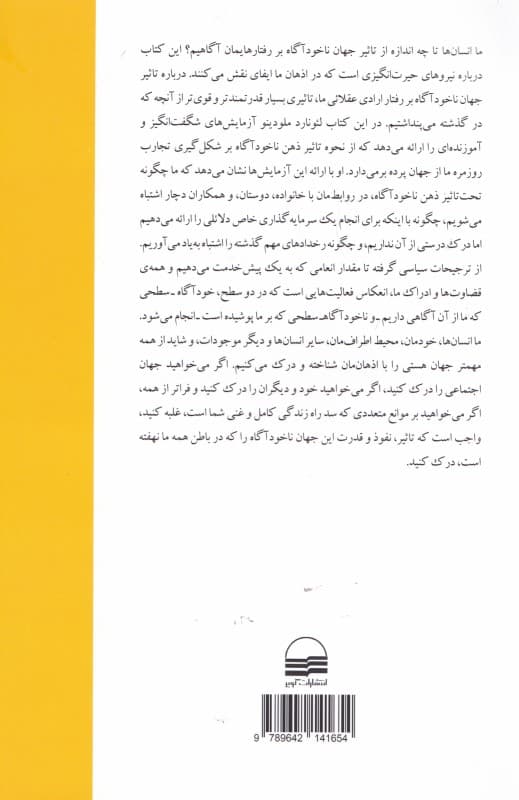 ما انسان‌ها تا چه اندازه از تاثیر جهان ناخودآگاه بر رفتارهایمان آگاهیم؟ این کتاب
درباره نیروهای حیرت‌انگیزی است که در اذهان ما ایفای نقش می‌کنند. درباره تاثیر
جهان ناخودآگاه بر رفتار ارادی عقلائی ما، تاثیری بسیار قدرتمندتر و قوی‌تر از آنچه که
در گذشته می‌پنداشتیم. در این کتاب لئونارد ملودینو آزمایش‌های شگفت‌انگیز و
آموزنده‌ای را ارائه می‌دهد که از نحوه تاثیر ذهن ناخودآگاه بر شکل‌گیری تجارب
روزمره ما از جهان پرده برمی‌دارد. او با ارائه این آزمایش‌ها نشان می‌دهد که ما چگونه
تحت‌تاثیز ذهن ناخودآگاه، در روابط‌مان با خانواده، دوستان، و همکاران دچار اشتباه
می‌شویم، چگونه با اینکه برای انجام یک سرمایه‌گذاری خاص دلائلی را ارائه می‌دهیم
اما درک درستی از آن نداریم، و چگونه رخدادهای مهم گذشته را اشتباه به‌یاد می‌آوریم.
از ترجیحات سیاسی گرفته تا مقدار انعامی که به یک پیش‌خدمت می‌دهیم و همه‌ی
قضاوت‌ها و ادراک ما، انعکاس فعالیت‌هایی است که در دو سطح، خودآگاه ـ سطحی
که ما از آن آگاهی داریم ـ و ناخودآگاه ـ سطحی که بر ما پوشیده است ـ انجام می‌شود.
ما انسان‌ها، خودمان، محیط اطراف‌مان، سایر انسان‌ها و دیگر موجودات، و شاید از همه
مهمتر جهان هستی را با اذهان‌مان شناخته و درک می‌کنیم. اگر می‌خواهید جهان
اجتماعی را درک کنید، اگر می‌خواهید خود و دیگران را درک کنید و فراتر از همه،
اگر می‌خواهید بر موانع متعددی که سد راه زندگی کامل و غنی شما است، غلبه کنید،
واجب است که تاثیر، نفوذ و قدرت این جهان ناخودآگاه را که در باطن همه ما نهفته
است، درک کنید.
انتشارات کویر
9 789642 141654